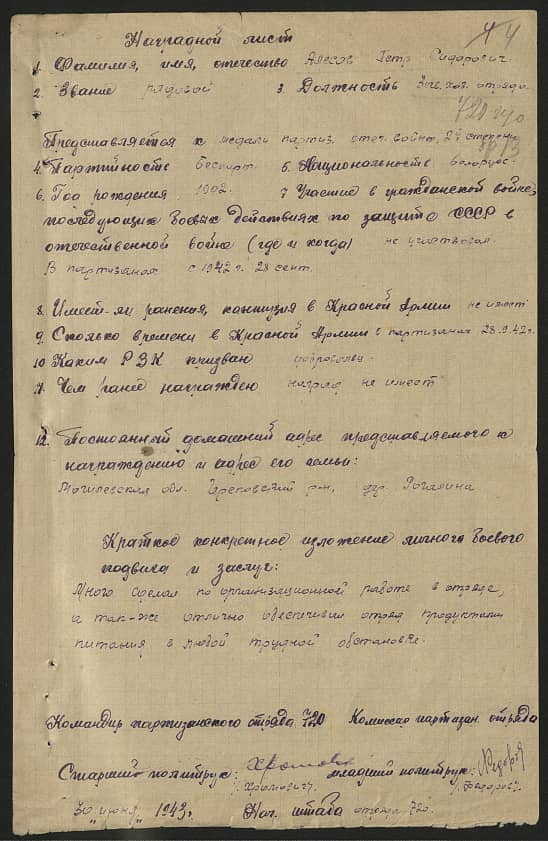 44
Наградной лист
1. Фамилия, имя, отчество Алесов Петр Сидорович
2. Звание рядовой 3. Должность Зав. хоз. отряда
720
Представляется к медаль партиз. отеч. войны 2й степени
4. Партийность беспарт. 5. Национальность белорус.
6. Год рождения 1902. 7 Участие в гражданской войне,
последующих боевых действиях по защите СССР в
отечественной войне (где и когда) не участвовал.
В партизанах с 1942 г. 28 сент.
8. Имеет-ли ранения, контузия в Красной Армии не имеет
9. Сколько времени в Красной Армии в партизанах 28.9.42г.
10 Каким РВК призван доброволец.
11. Чем ранее награждею наград не имеет
12. Постоянный домашний адрес представляемого к
награждению и адрес его семьи:
Могилевская обл. р-н, дер.
Краткое конкретное изложение личного боевого
подвига и заслуг:
Много сделал по организационной работе в отряде,
а так-же отлично обеспечивал отряд продуктами
питания в любой трудной обстановке.
Командир партизанского отряда 720 Комиссар партизан. отряда
Старший политрук: младший политрук:
/Хромович/ /Федоров/
30 "июня" 1943г. Нач. штаба отряда 720.